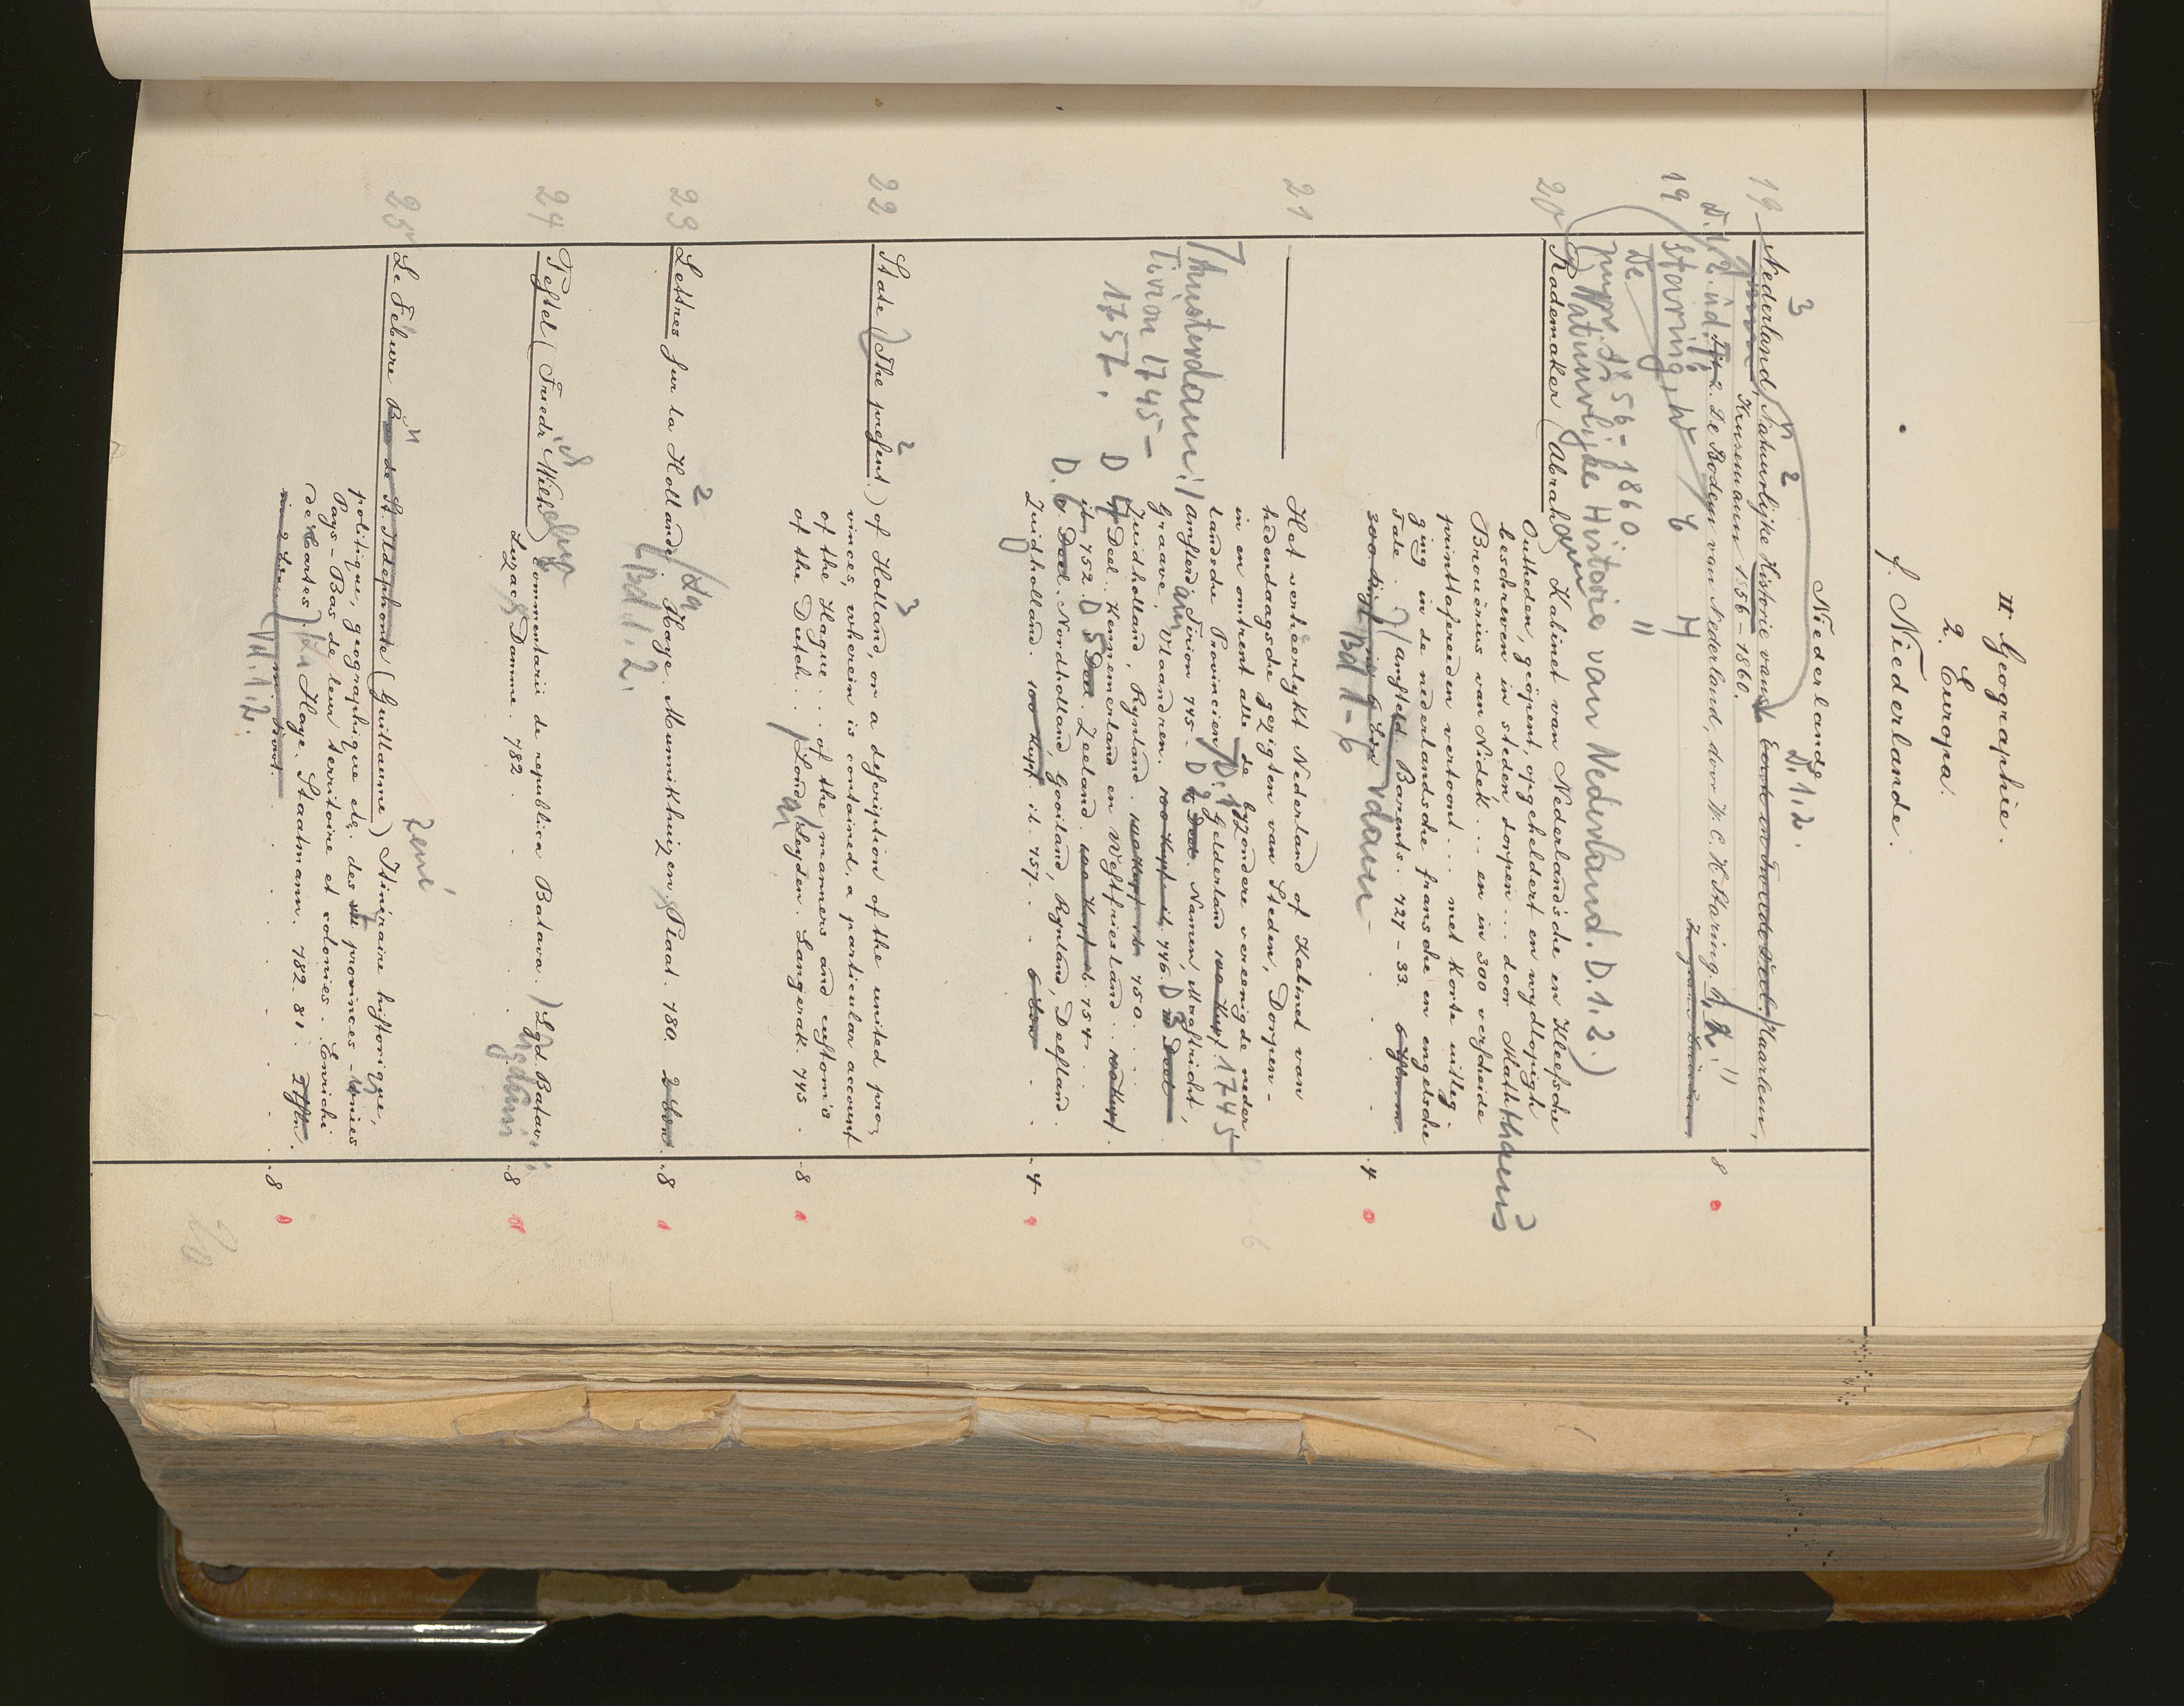 II Geographie.
2. Europa.
f. Niederlande.
Niederlande
D. 1. 2.
3
2
19 Nederland, Natuurlijke Historie van. Eerste en tweede deel. Haarlem,
Kruseman 1856-1860.
2. De Bodem van Nederland, door W. C. H. Staring. 1, 2. 8
19 Staring, W C H
De
1856-1860
Natuurlijke Historie van Nederland. D. 1. 2.)
20 Rademaker (Abraham) Kabinet van Nederlandsche en Kleefsche
Outheden, geopent, opgeheldert en wydlopigh
beschreven in steden dorpen... door Matthaeus
Brouërius van Nidek... en in 300 verscheide
printtafereelen vertoont... met korte uitleg-
ging in de nederlandsche fransche en engelsche
Tale. Amsterdam Barents. 727-33. 6
300 6
Bd 1-6 4
21 Het verheerlykt Nederland of Kabinet van
hedendaagsche gezigten van Steden, Dorpen-
in en omtrent alle de byzondere vereenigde neder-
landsche Provincien D. 1 Gelderland 100 1745-
/Amsterdam:/ Amsterdam Tirion 745. D 2 Deel. Namen, Mastricht,
Tirion 1745- Graave, Vlaandren. 100 Kupf. it. 746. D 3 Deel
1757. Zuidholland, Rynland. 100 Kupf. it. 750.
D 4 Deel. Kennemerland en Westfriesland. 100 Kupf.
it 752. D 5 Deel. Zeeland. 100 Kupf. it. 754.
D. 6 Deel. Nordholland, Gooiland, Rynland, Delfland.
Zuidholland. 100 Kupf. it. 757. 6 4
2
3
22 State (The present) of Holland, or a description of the united pro-
vinces, wherein is contained, a particular account
of the Hague... of the manners and customs
of the Dutch. Lond. Leyden. Langerak. 745 8
2
23 Lettres sur la Hollande. /La Haye. Munnikhuizen Plaat. 780. 2 8
Bd 1. 2.
24 Pestel (Friedr. Wilh.) Commentarii de republica Batava. Lgd. Batav.
Luzac & Damme. 782 8
René
25 Le Febure de St. Ildephonse (Guillaume) Itinéraire historique,
politique, géographique etc. des 7 provinces-unies
Pays-Bas de leur territoire et colonies. Enrichi
(de Cartes) La Haye. Staatmann. 782. 81. 2
Vol. 1. 2. 8